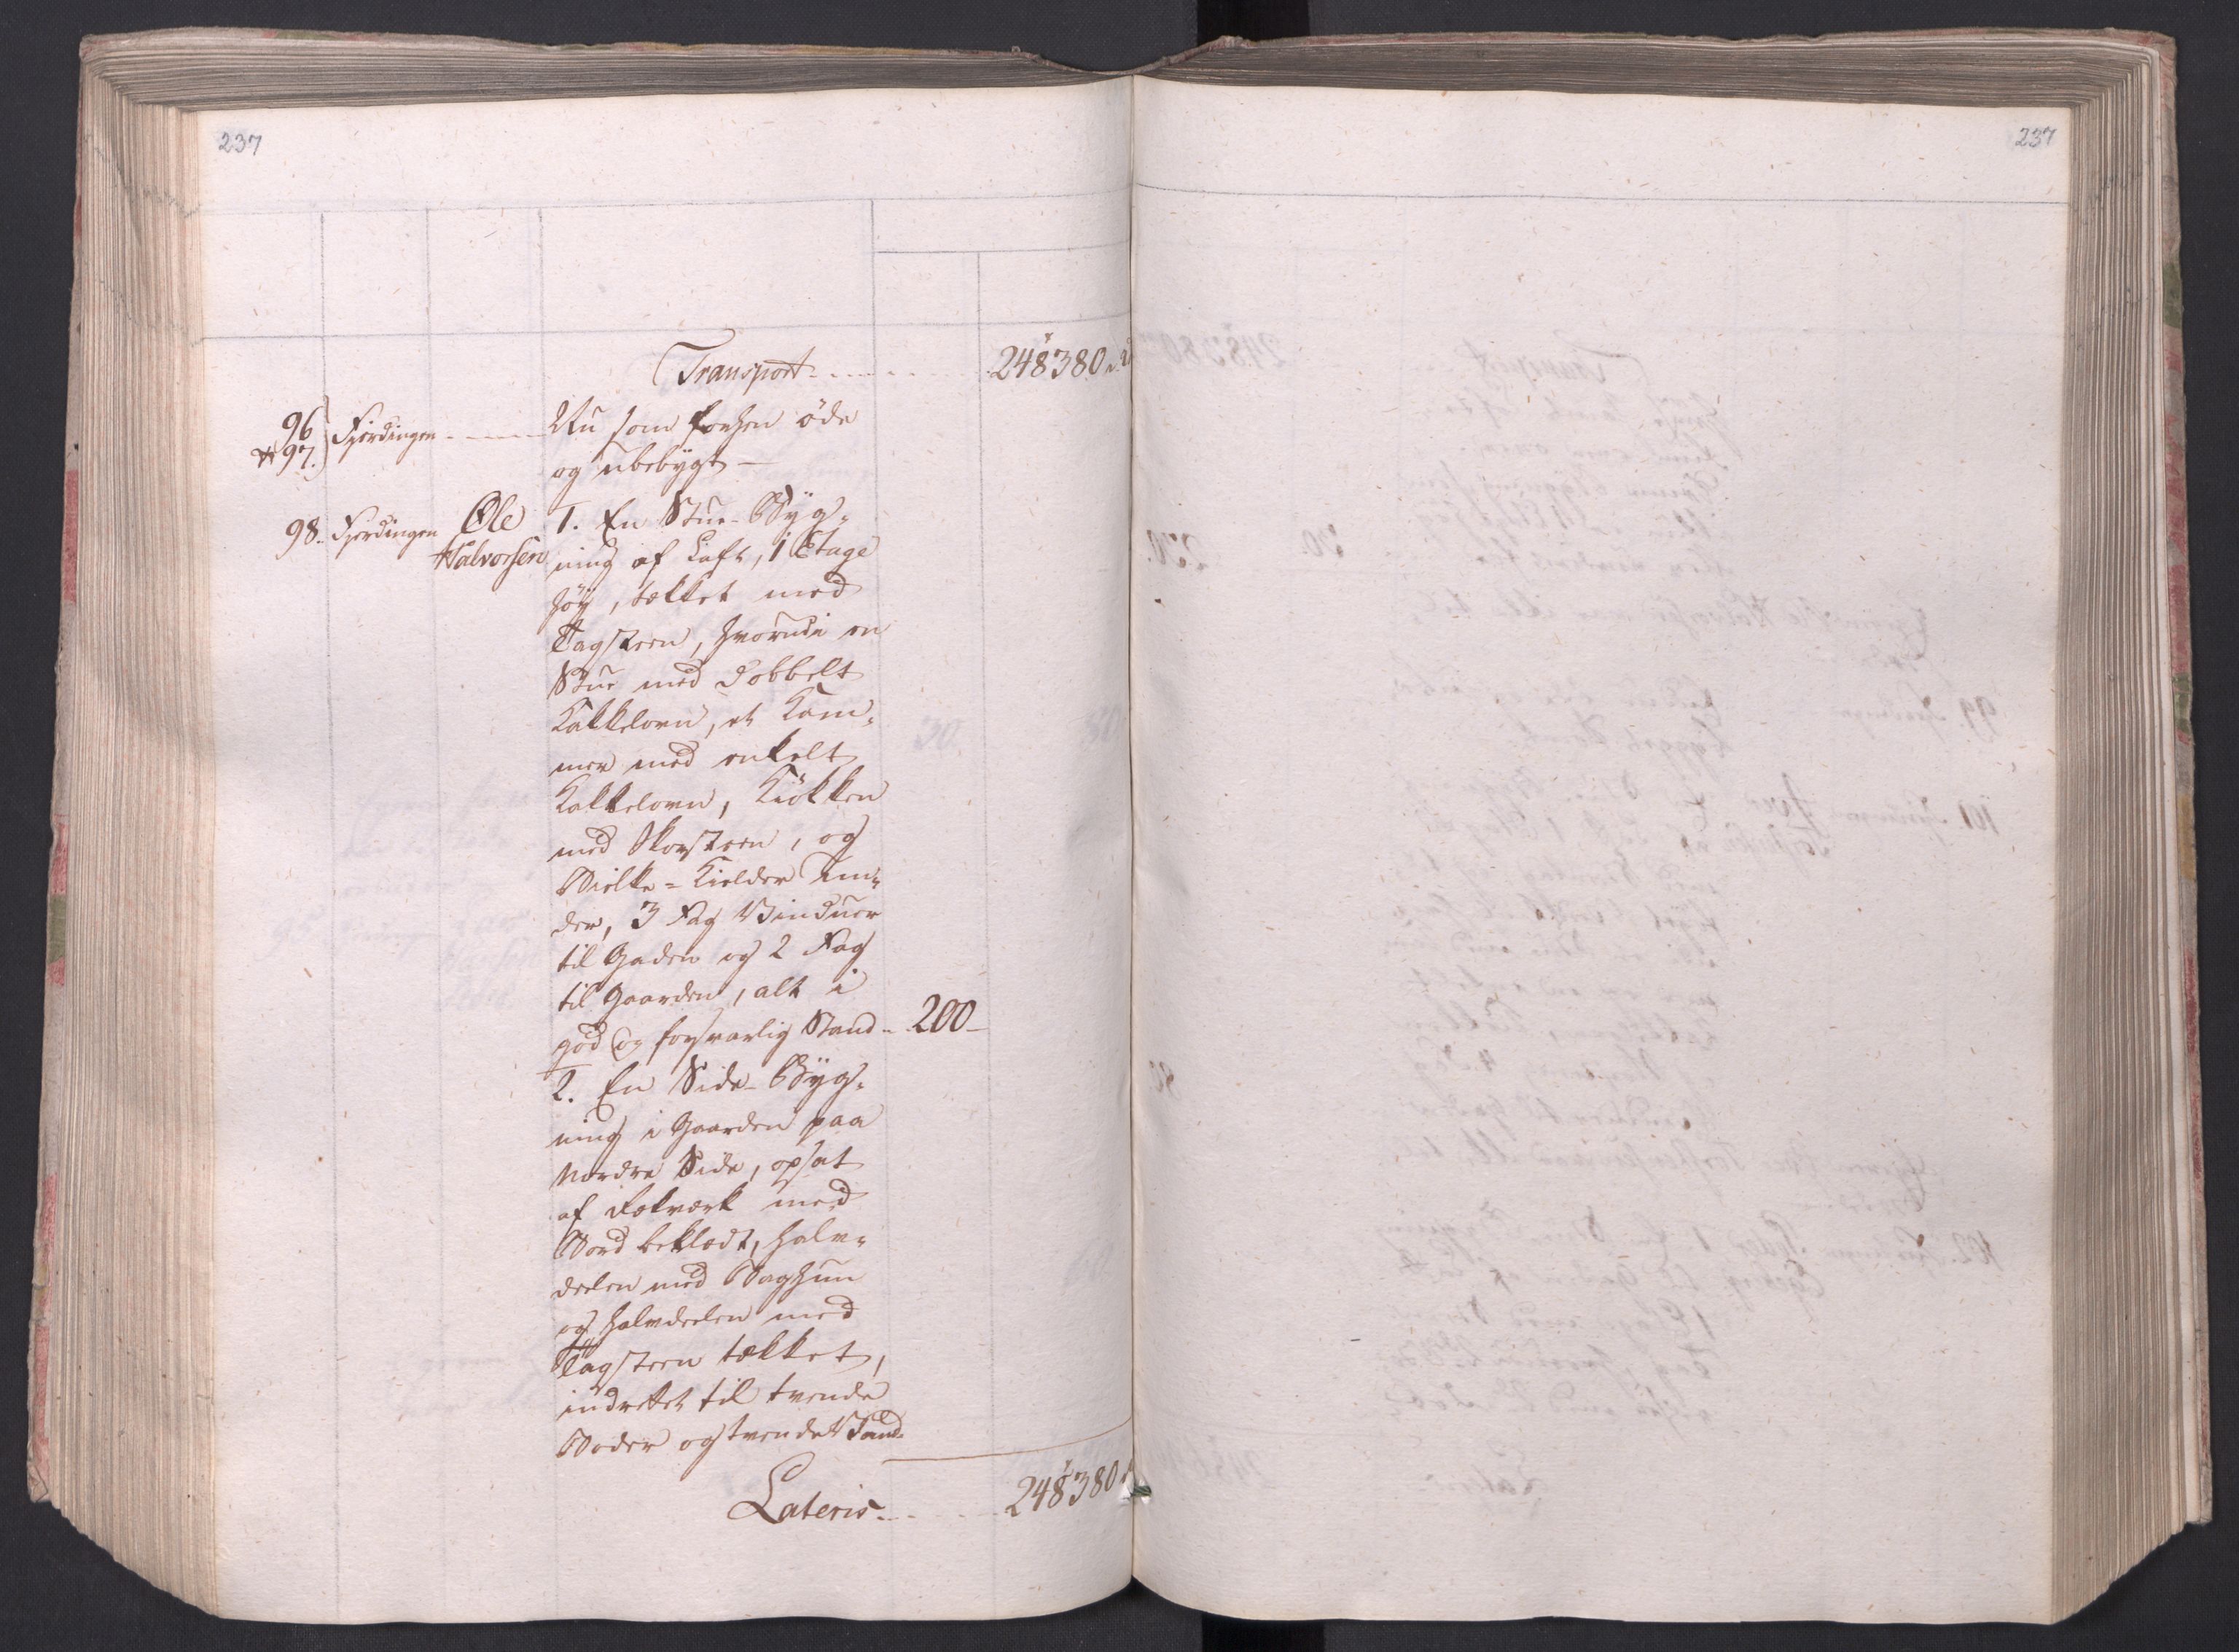 237
237
Transport 248380 rd
96
& 97. Fjerdingen Nu som forhen öde
og ubebÿgt —
98. Fjerdingen Ole 1. En Stue-Bÿg-
Halvorsen ning af Laft, 1 Etage
höÿ, tækket med
Tagsteen, hvorudi en
Stue med dobbelt
Kakkelovn, et Kam-
mer med enkelt
Kakkelovn, Kiökken
med Skorsteen, og
Bielke-Kielder un-
der, 3 Fag Vinduer
til Gaden og 2 Fag
til Gaarden, alt i
god og forsvarlig Stand 200
2. En Side-Bÿg-
ning i Gaarden paa
Nordre Side, opsat
af Fekværk med
Bord beklædt, halv-
deelen med Baghun
og halvdeelen med
Tagsteen tækket,
indrettet til tvende
Boder og tvende Vand-
Lateris 248380